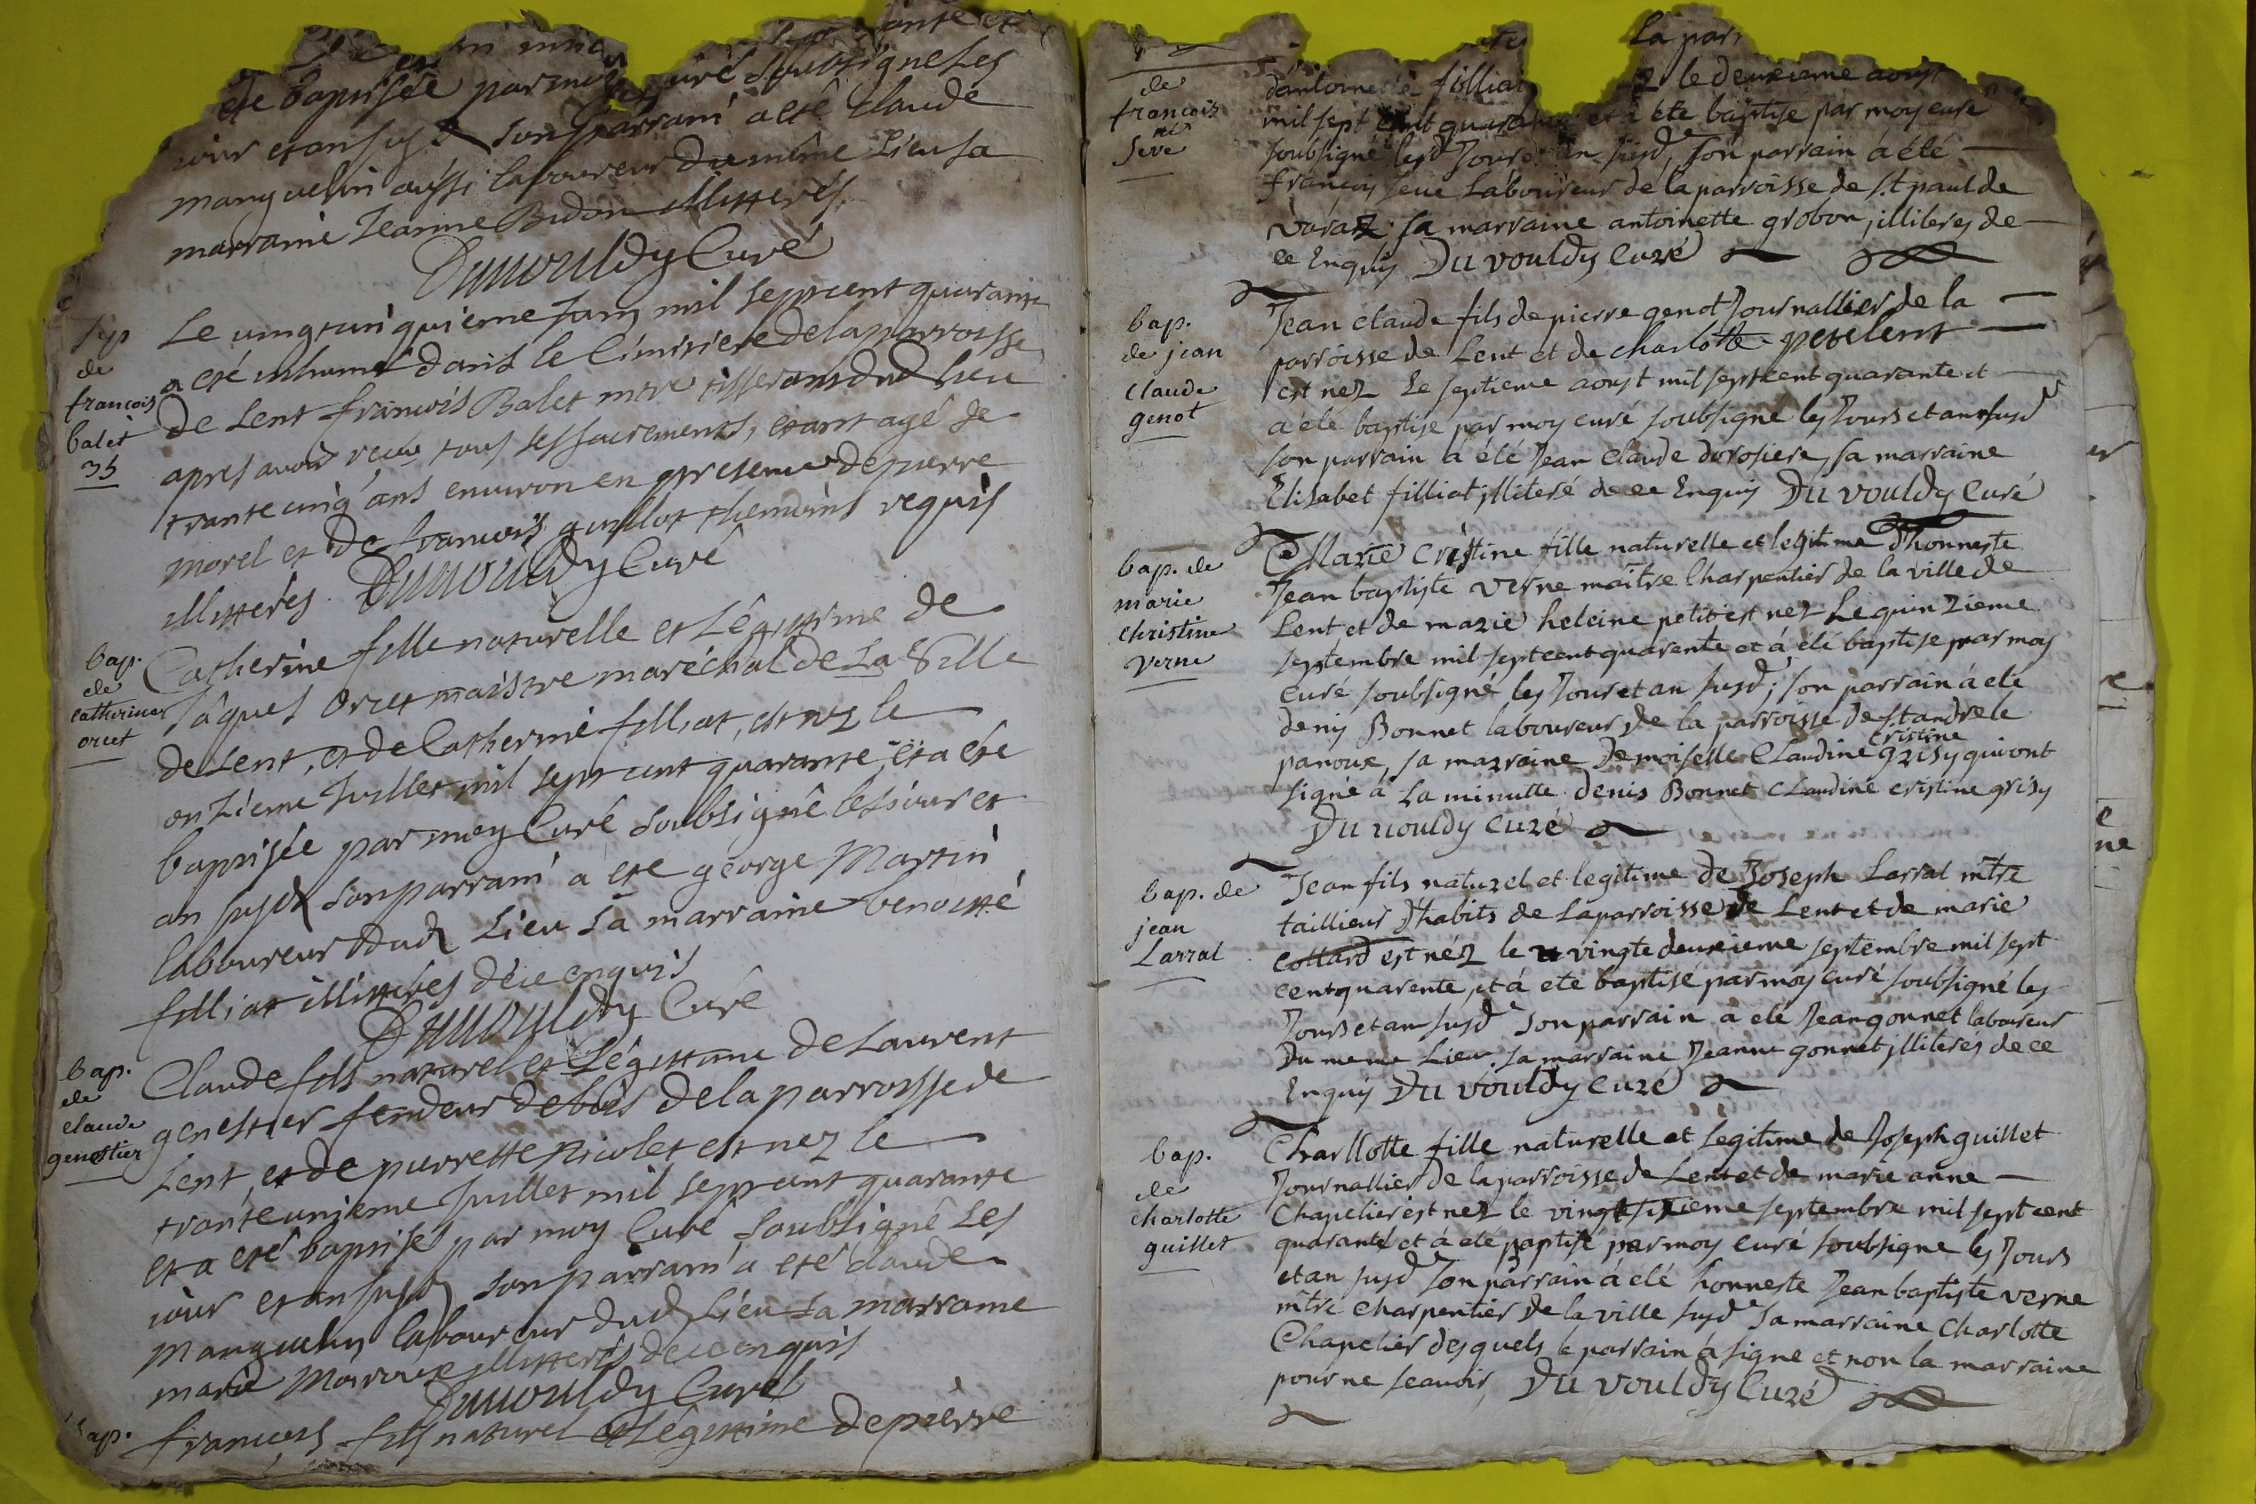 été baptisée par moy curé soubsigné les
jour et an susd son parrain a eté claude
manguelin aussi laboureur du même Lieu sa
marraine Jeanne Bidon illitterés
Duvouldy Curé
Sep
de
francois
balet
35
Le vingt cinquieme Juin mil sept cent quarante
a eté inhumé dans le Cimitiere de la parroisse
de Lent francois Balet mtre tisserant dud lieu
apres avoir receu tous ses sacrements, etant agé de
trante cinq ans environ en presence de pierre
morel et de francois guillot themoins requis
illitterés Duvouldy Curé
bap.
de
catherine
orcet
Catherine fille naturelle et Légittime de
Jâques Orcet maistre maréchal de La Ville
de Lent, et de Catherine filliat, est nez le
onzieme Juillet mil sept cent quarante, et a été
baptisée par moy Curé soubsigné les jour et
an susd son parrain a eté george Martin
laboureur dud Lieu sa marraine benoitte
filliat illitterés de ce enquis
Duvouldy Curé
bap.
de
claude
genestier
Claude fils naturel et Légittime de Laurent
genestier fendeur de bois de la parroisse de
Lent, et de pierrette Nicolet est nez le
trante unieme Juillet mil sept cent quarante
et a eté baptisé par moy Curé soubsigné Les
jour et an susd son parrain a eté claude
manguelin laboureur dud Lieu sa marraine
marie illitterés de ce enquis
Duvouldy Curé
bap.
francois fils naturel et Légittime de pierre
de
francois
seve
La parr
d'antoinette filliat le deuxieme aoust
mil sept cent quarante et à été baptise par moy curé
soubsigné les Jours et an susd, son parrain à été
françois seve Laboureur de la parroisse de s.t paul de
varaz sa marraine antoinette grobon, illiteres de
ce Enquis Du vouldy Curé
bap.
de jean
claude
genot
Jean claude fils de pierre genot Journallier de la
parroisse de Lent et de charlotte
est nez Le septieme aoust mil sept cent quarante et
a été baptise par moy curé soubsigné les Jours et an susd
son parrain à été Jean Claude dorosiere, sa marraine
Elisabet filliat illiteré de ce Enquis Du vouldy Curé
bap. de
marie
christine
verne
Marie Cristine fille naturelle et legitime D'honneste
Jean baptiste verne maître Charpentier de la ville de
Lent et de marie heleine petit est nez Le quinzieme
septembre mil sept cent quarente et à été baptise par moy
Curé soubsigné les Jour et an susd; son parrain à eté
denis Bonnet laboureur de la parroisse de s.t andre le
panoux, sa marraine Demoiselle Claudine cristine grisy qui ont
signé à La minutte denis Bonnet Claudine cristine grisy
Du vouldy curé
bap. de
jean
Larral
Jean fils naturel et legitime de Joseph Larral mtre
taillieur D'habits de La parroisse de Lent et de marie
collard est néz le vingte deuxieme septembre mil sept
cent quarente, et à eté baptisé par moy curé soubsigné les
Jours et an susd son parrain à eté Jean gonnet laboureur
Du meme Lieu. sa marraine Jeanne gonnet, illiteres de ce
Enquis Du vouldy curé
bap.
de
charlotte
guillet
Charllotte fille naturelle et Legitime de Joseph guillet
Journallier de la parroisse de Lent et de marie anne
Chapelier est nez le vingt sixieme septembre mil sept cent
quaranté et à eté paptisé par moy curé soubsigne les Jours
et an susd son parrain à eté honneste Jean baptiste verne
mtre Charpentier de la ville susd Sa marraine Charlotte
Chapelier desquels le parrain à signe et non la marraine
pour ne scavoir, Du vouldy Curé